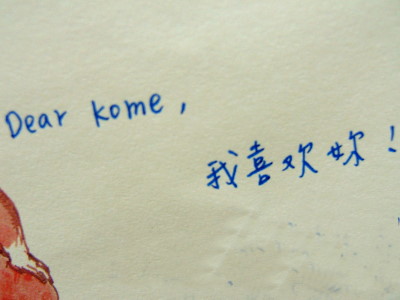 Dear kome,
我喜欢妳！